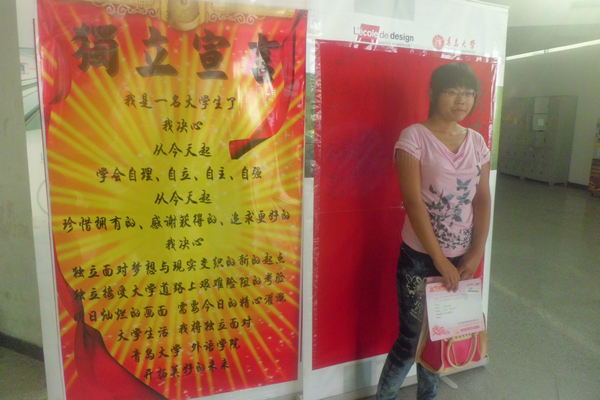 獨立宣言
我是一名大学生了
我决心
从今天起
学会自理、自立、自主、自强
从今天起
珍惜拥有的、感谢获得的、追求更好的
我决心
独立面对梦想与现实交织的新的起点
独立接受大学道路上艰难险阻的考验
明日灿烂的画面 需要今日的精心灌溉
大学生活 我将独立面对
青岛大学 外语学院
开拓美好的未来
L'école de design
青岛大学